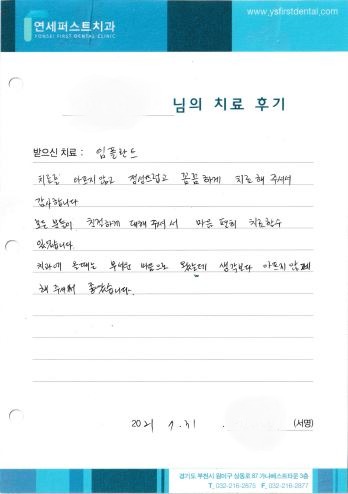 연세퍼스트치과
YONSEI FIRST DENTAL CLINIC
www.ysfirstdental.com
님의 치료 후기
받으신 치료 : 임플란트
치료를 아프지 않고 정성스럽고 꼼꼼하게 치료해 주셔서
감사합니다
모든 분들이 친절하게 대해 주셔서 마음 편히 치료할수
있었습니다
치과에 올때는 무서운 마음으로 왔는데 생각보다 아프지 않게
해 주셔서 좋았습니다.
2021 7. 31 (서명)
경기도 부천시 원미구 상동로 87 가나베스트타운 3층
T. 032-216-2875 F. 032-216-2877